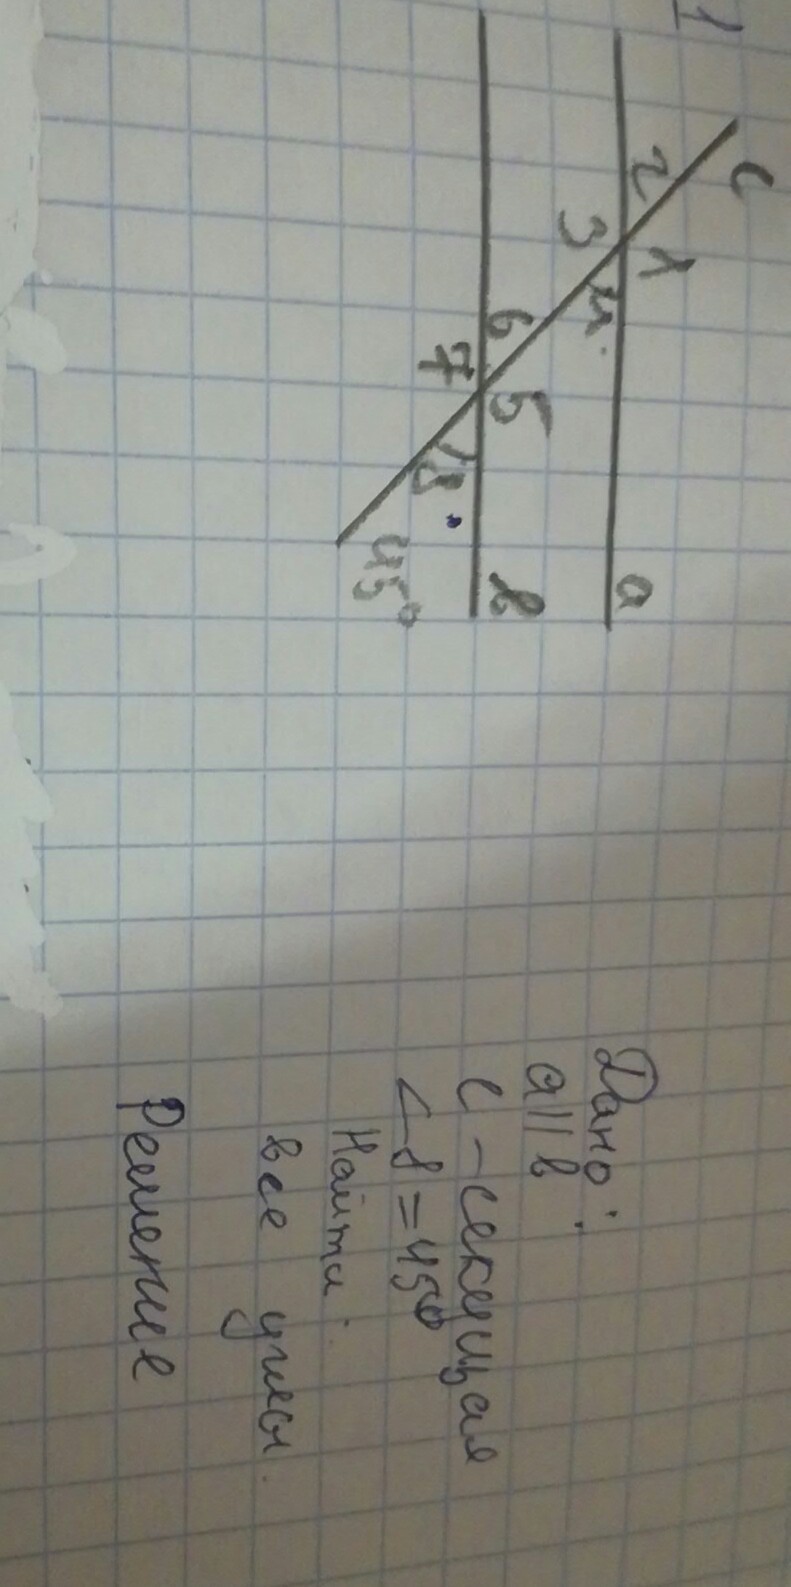 1
c
2
1
a
3
4
6
5
b
7
8
45°
Дано:
a||b
c - секущая
∠8=45°
Найти:
все углы.
Решение